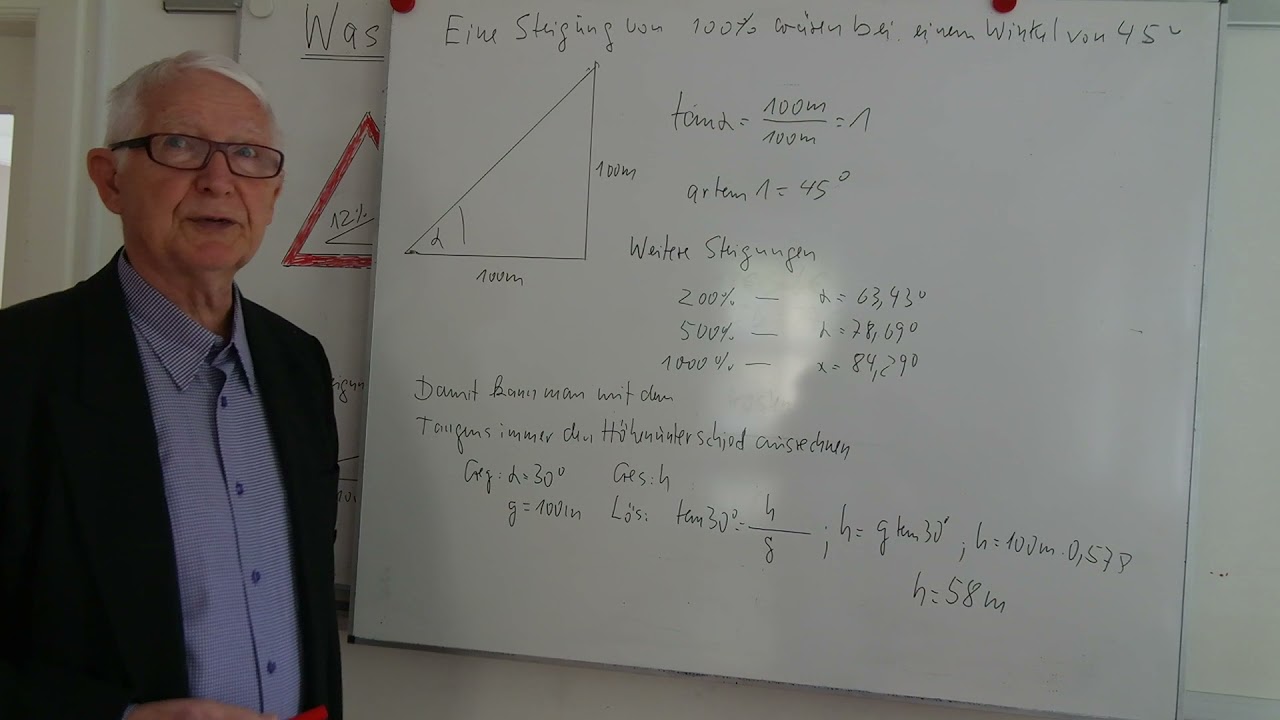 Was
12%
Eine Steigung von 100% wären bei einem Winkel von 45°
tan α = 100m / 100m = 1
100m
arctan 1 = 45°
α
100m
Weitere Steigungen
200% — α = 63,43°
500% — α = 78,69°
1000% — α = 84,29°
Damit kann man mit dem
Tangens immer den Höhenunterschied ausrechnen
Geg: α = 30° Ges: h
g = 100m Lös: tan 30° = h / g ; h = g tan 30° ; h = 100m · 0,578
h = 58m